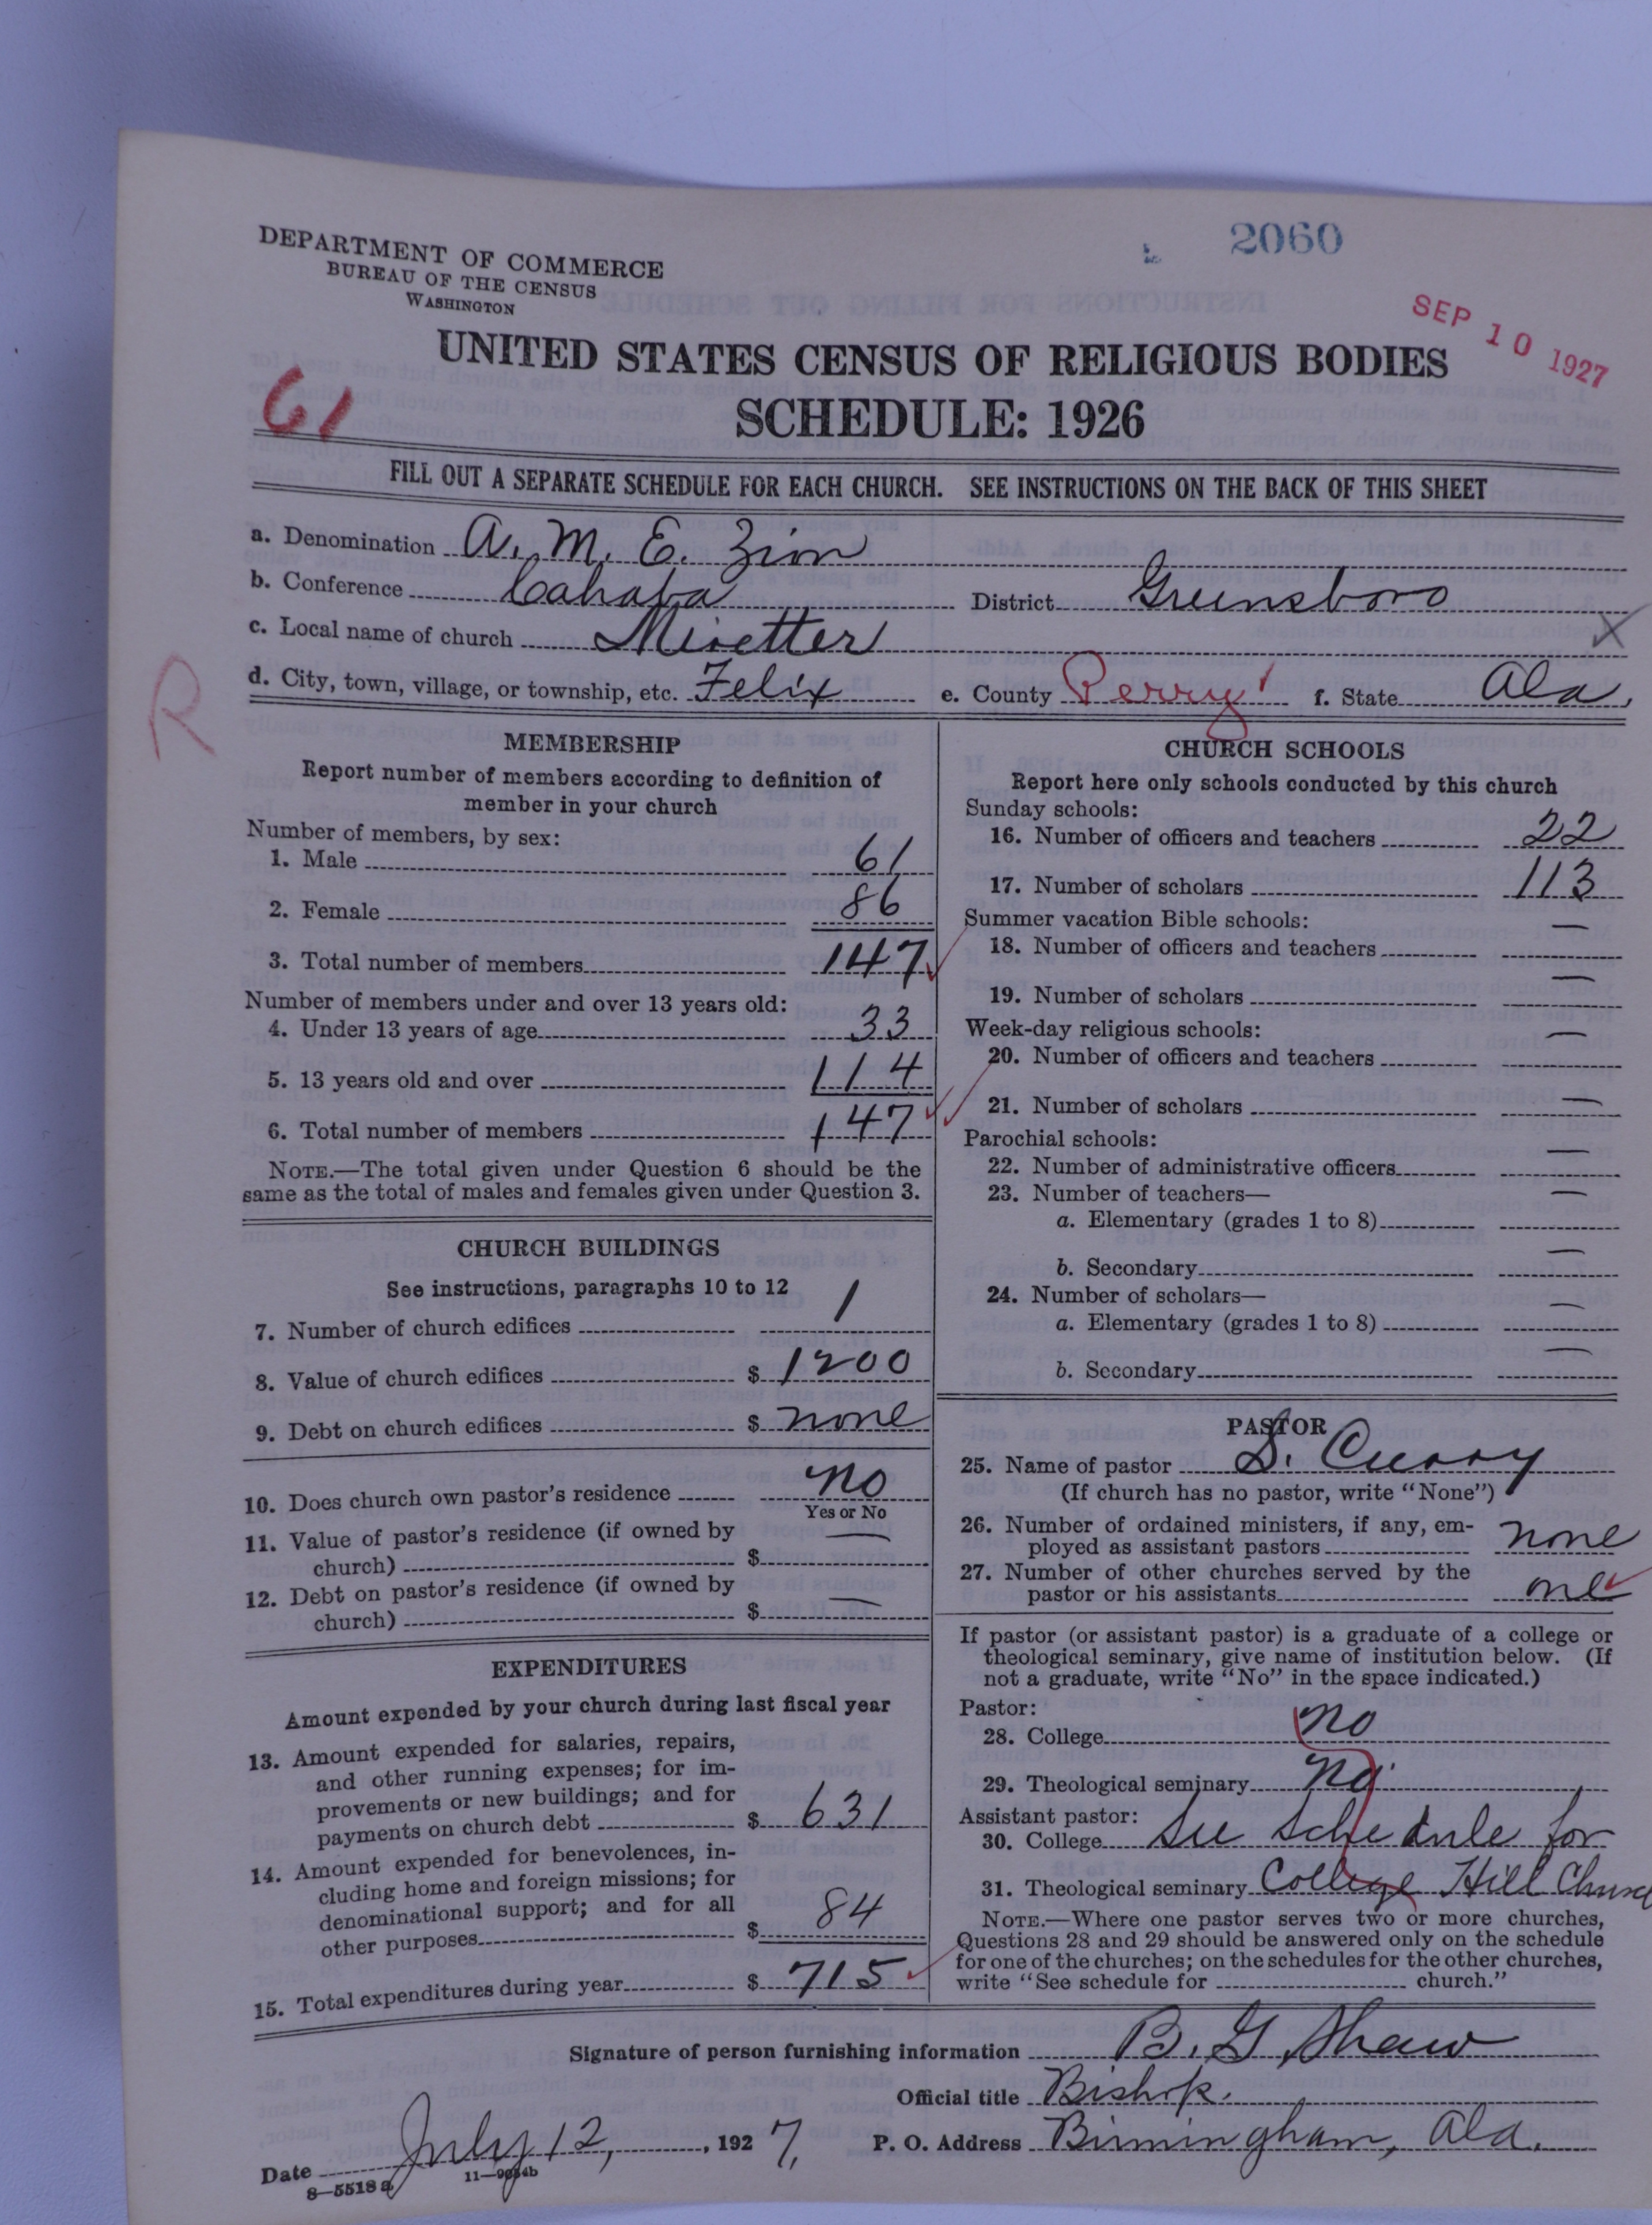 2060
SEP 10 1927
DEPARTMENT OF COMMERCE
BUREAU OF THE CENSUS
WASHINGTON
UNITED STATES CENSUS OF RELIGIOUS BODIES
SCHEDULE: 1926
61
FILL OUT A SEPARATE SCHEDULE FOR EACH CHURCH. SEE INSTRUCTIONS ON THE BACK OF THIS SHEET
a. Denomination A. M. E. Zion
b. Conference Cahaba District Greensboro
c. Local name of church X
d. City, town, village, or township, etc. Felix e. County Perry f. State Ala.
R
MEMBERSHIP
Report number of members according to definition of
member in your church
Number of members, by sex:
1. Male 61
2. Female 86
3. Total number of members 147
Number of members under and over 13 years old:
4. Under 13 years of age 33
5. 13 years old and over 114
6. Total number of members 147
NOTE.—The total given under Question 6 should be the
same as the total of males and females given under Question 3.
CHURCH BUILDINGS
See instructions, paragraphs 10 to 12
7. Number of church edifices 1
8. Value of church edifices $ 1200
9. Debt on church edifices $ none
10. Does church own pastor's residence no
Yes or No
11. Value of pastor's residence (if owned by
church) $ —
12. Debt on pastor's residence (if owned by
church) $ —
EXPENDITURES
Amount expended by your church during last fiscal year
13. Amount expended for salaries, repairs,
and other running expenses; for im-
provements or new buildings; and for
payments on church debt $ 631
14. Amount expended for benevolences, in-
cluding home and foreign missions; for
denominational support; and for all
other purposes $ 84
15. Total expenditures during year $ 715
CHURCH SCHOOLS
Report here only schools conducted by this church
Sunday schools:
16. Number of officers and teachers 22
17. Number of scholars 113
Summer vacation Bible schools:
18. Number of officers and teachers —
19. Number of scholars —
Week-day religious schools:
20. Number of officers and teachers —
21. Number of scholars —
Parochial schools:
22. Number of administrative officers —
23. Number of teachers—
a. Elementary (grades 1 to 8) —
b. Secondary —
24. Number of scholars—
a. Elementary (grades 1 to 8) —
b. Secondary —
PASTOR
25. Name of pastor S. Curry
(If church has no pastor, write "None")
26. Number of ordained ministers, if any, em-
ployed as assistant pastors none
27. Number of other churches served by the
pastor or his assistants one
If pastor (or assistant pastor) is a graduate of a college or
theological seminary, give name of institution below. (If
not a graduate, write "No" in the space indicated.)
Pastor:
28. College no
29. Theological seminary no
Assistant pastor:
30. College See schedule for
31. Theological seminary College Hill Church
NOTE.—Where one pastor serves two or more churches,
Questions 28 and 29 should be answered only on the schedule
for one of the churches; on the schedules for the other churches,
write "See schedule for church."
Signature of person furnishing information B. G. Shaw
Official title Bishop.
Date July 12, 1927, P. O. Address Birmingham, Ala.
8—5518 a 11—9034b